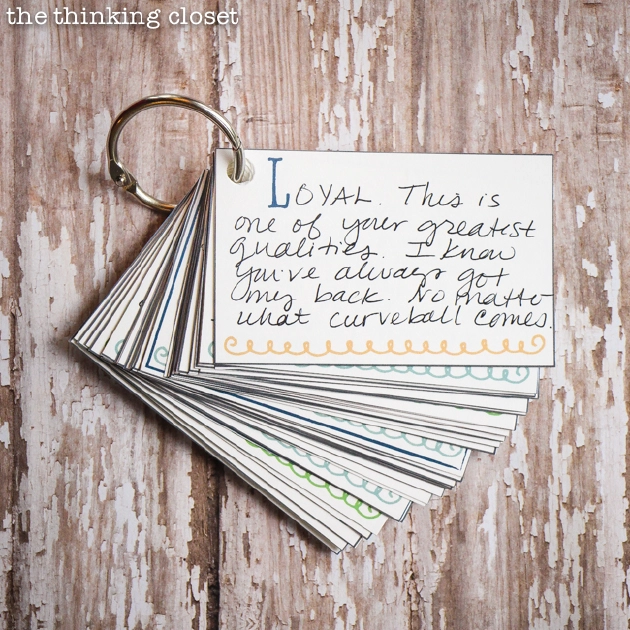 the thinking closet
LOYAL. This is
one of your greatest
qualities. I know
you've always got
my back. No matter
what curveball comes.